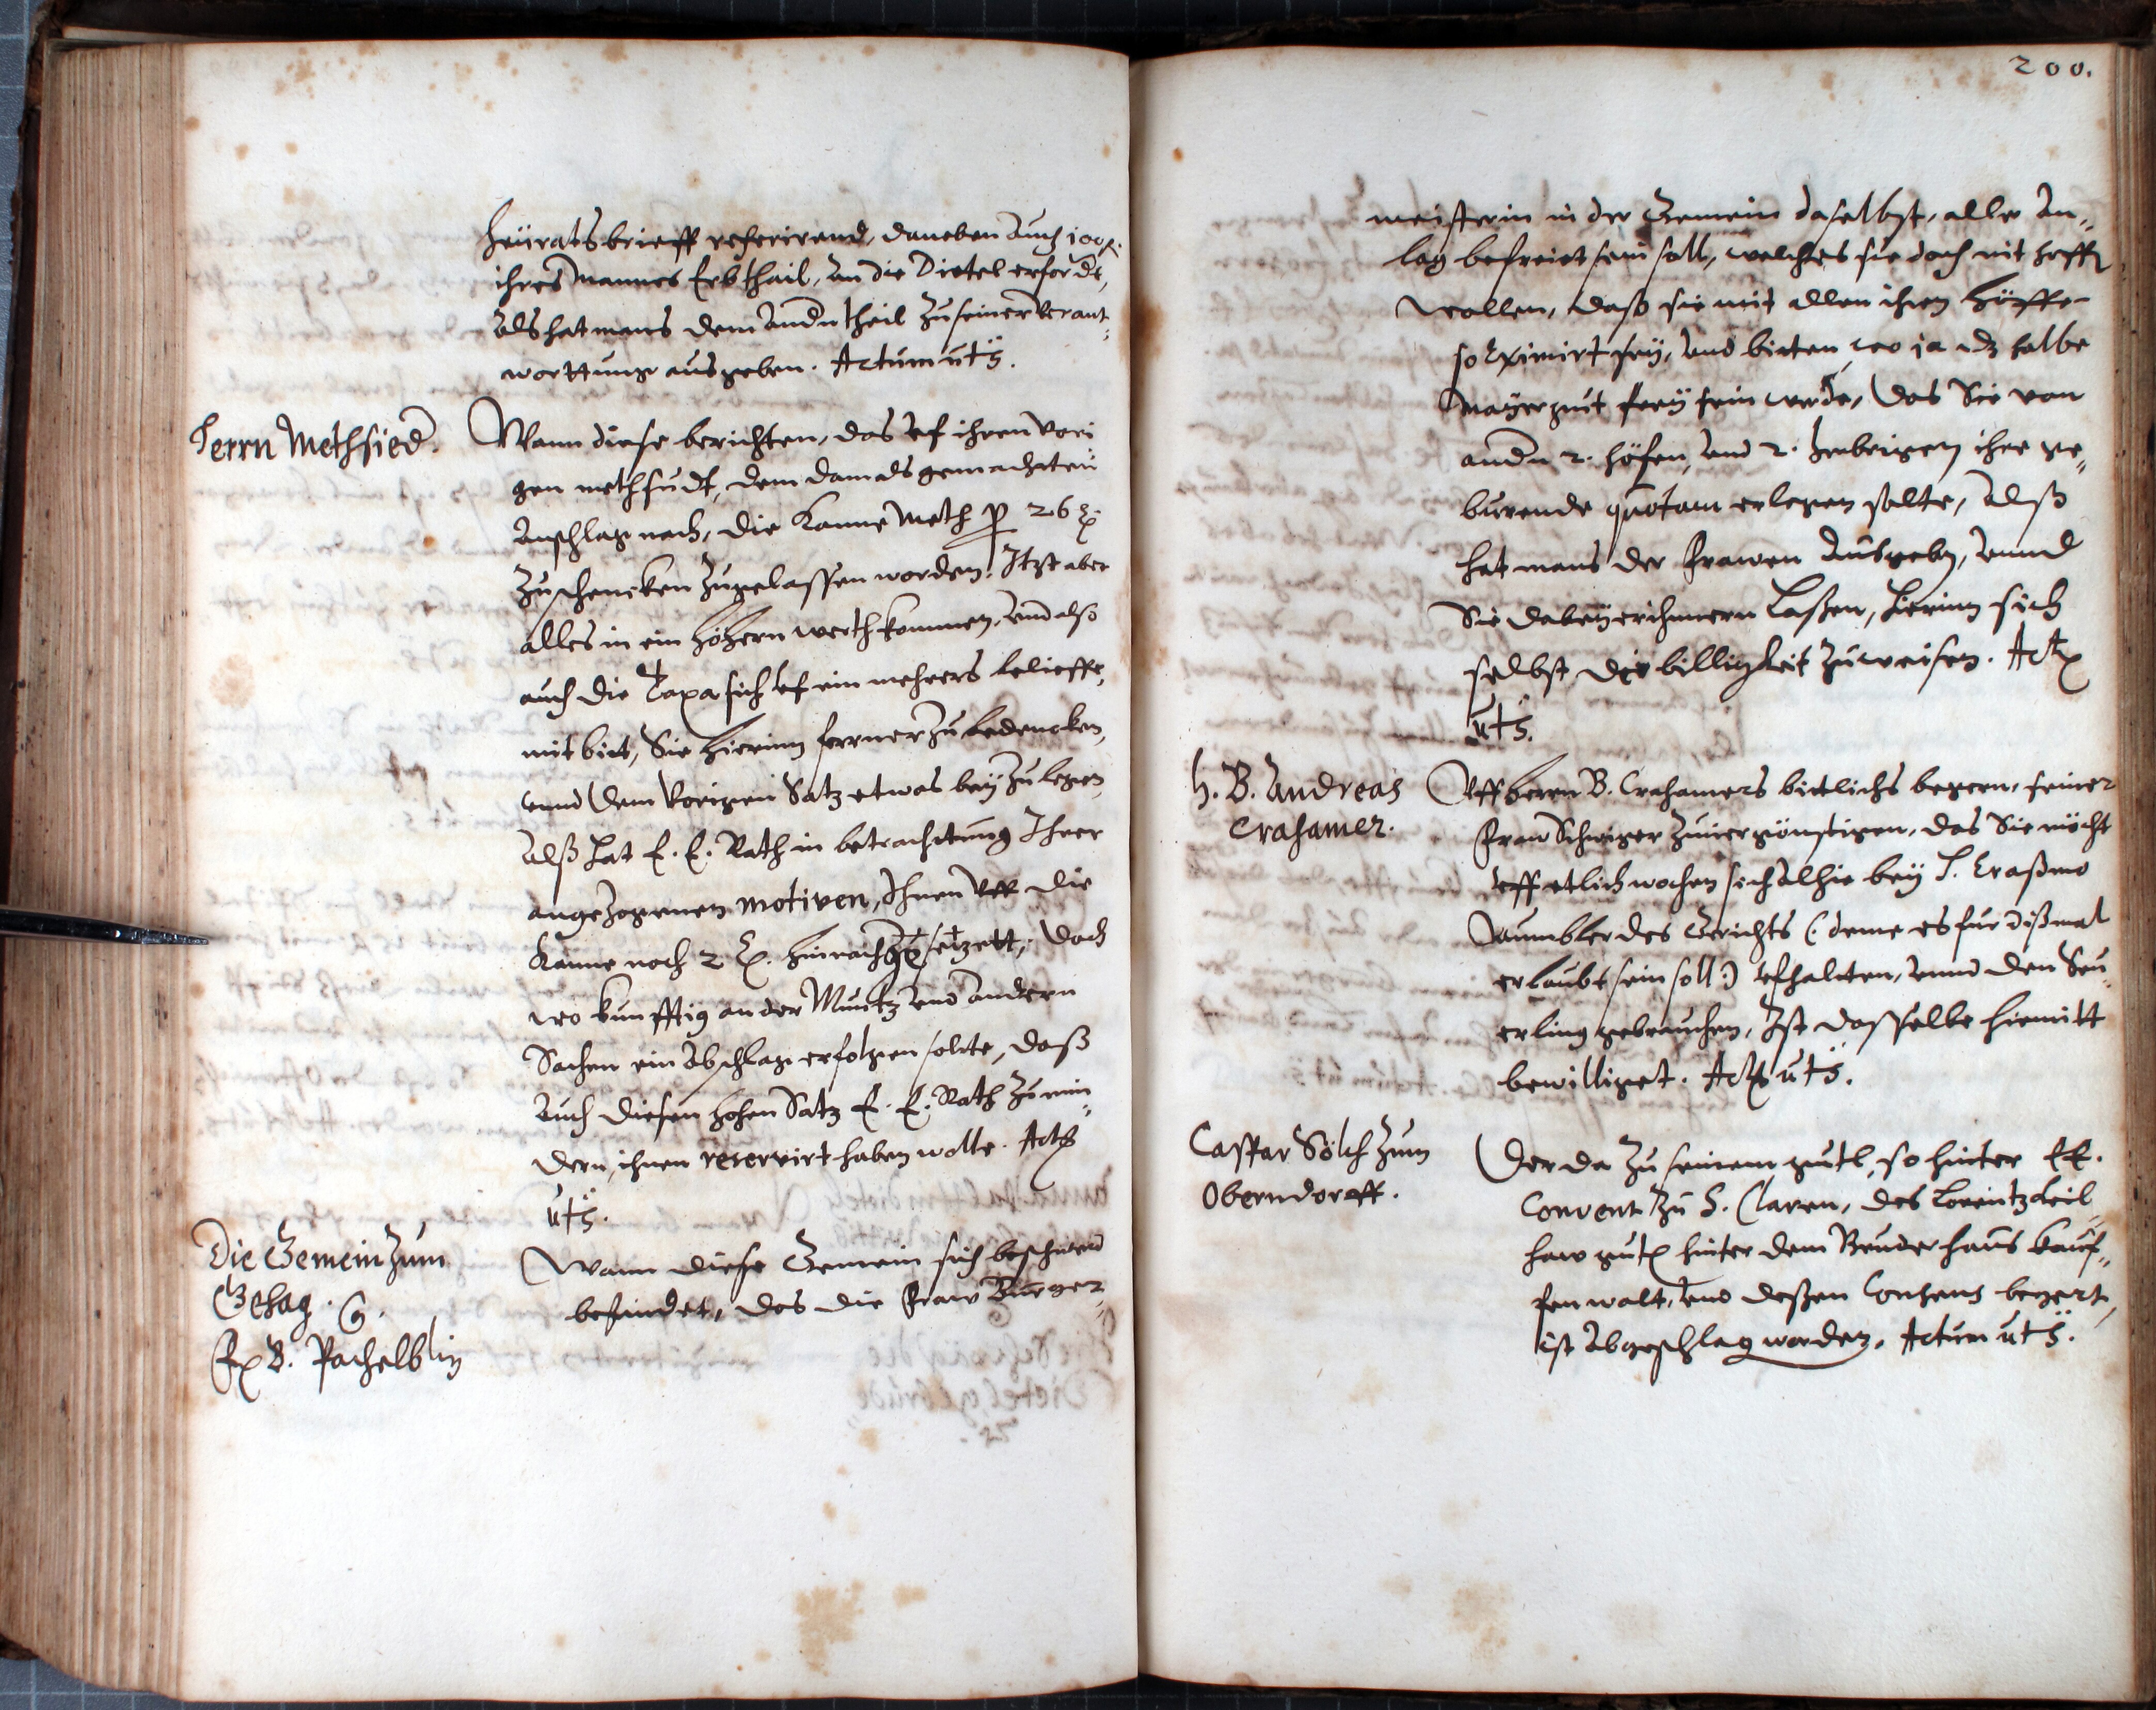 heüratsbrieff referirend, daneben auch 100 f.
ihres Mannes Erbthail, an die Dietel erfordt,
als hat mans dem andn theil zu seiner verant-
worttung ausgeben. Actum uts.
Herrn Methsied.
Wann diese berichten, das uf ihren vori
gen methsudt, dem damals gemachten
anschlag nach, die Kanne Meth p 26 d.
zuschencken zugelassen worden. Itzt aber
alles in ein höhern werth kommen, und also
auch die Taxa sich uf ein mehrers belieffe,
mit bitt, Sie hierinn ferner zu bedencken,
unnd dem vorigen Satz etwas bey zu legen,
alß hat E. E. Rath in betrachtung Ihrer
angezogenen motiven, Ihnen uff die
Kanne noch 2 d. hinnach gesetzett, doch
wo kunfftig an der Muntz und andern
Sachen ein abschlag erfolgen solte, daß
auch diesen hohen Satz E. E. Rath zu min-
dern, ihnen reservirt haben wolle. Act
uts.
Die Gemein zum
Gehag. G.
Fr B. Pachelblin
Wann diese Gemein sich beschwerd
befindet, das die Fraw Burger-
200.
meisterin in der Gemein daselbst, aller an-
lag befreiet sein soll, welches sie doch nit hoffen
wollen, daß sie mit allen ihren höffen
so eximirt sey, und bitten, wo ja dz halbe
Mayergut frey sein werde, das Sie von
andn 2. höfen, und 2. herbrigen ihre ge-
burende quotam erlegen solte, alß
hat mans der Frawen ausgeben, unnd
Sie dabey erinnern laßen, hierinn sich
selbst der billigkeit zuweisen. Act
uts.
H. B. Andreas
Crahamer.
Uff herrn B. Crahamers bittlichs begern, seiner
Fraw Schwiger zuvergönstigen, das Sie möcht
uff etlich wochen sich alhie bey H. Eraßmo
Baumbler des Gerichts (: deme es fur dißmal
erlaubt sein soll :) ufhalten, unnd den Seu-
erling gebrauchen, Ist dasselbe hiemitt
bewilliget. Act uts.
Caspar Sölch zum
Oberndorff.
Der da zu seinem gutl, so hinter EE.
Convent zu S. Claren, des Lorentz
gut hinter dem Bruderhaus kauf-
fen wolt, und deßen Consens begert,
ist abgeschlag worden. Actum uts.